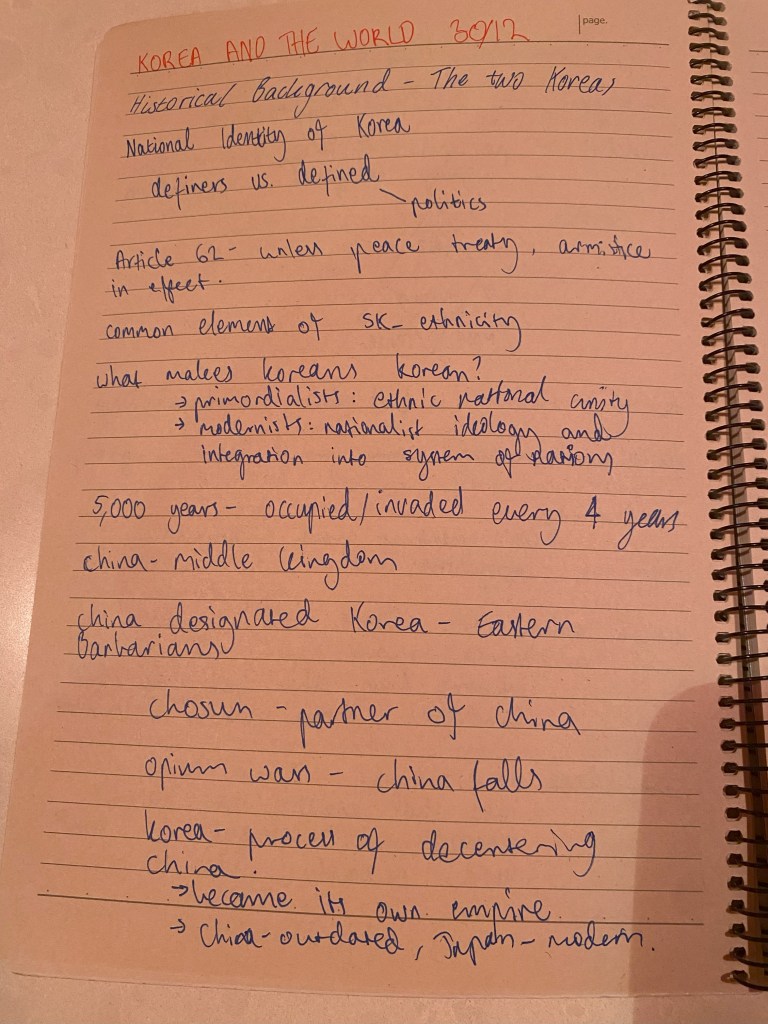 KOREA AND THE WORLD 30/12
page.
Historical Background - The two Koreas
National Identity of Korea
definers vs. defined
politics
Article 62 - unless peace treaty, armistice
in effect.
common element of SK - ethnicity
what makes koreans korean?
→ primordialists: ethnic national unity
→ modernists: nationalist ideology and
integration into system of nations
5,000 years - occupied/invaded every 4 years
china - middle kingdom
china designated Korea - Eastern
barbarians
chosun - partner of china
opium wars - china falls
korea - process of decentering
china.
→ became its own empire
→ China - outdated, Japan - modern.